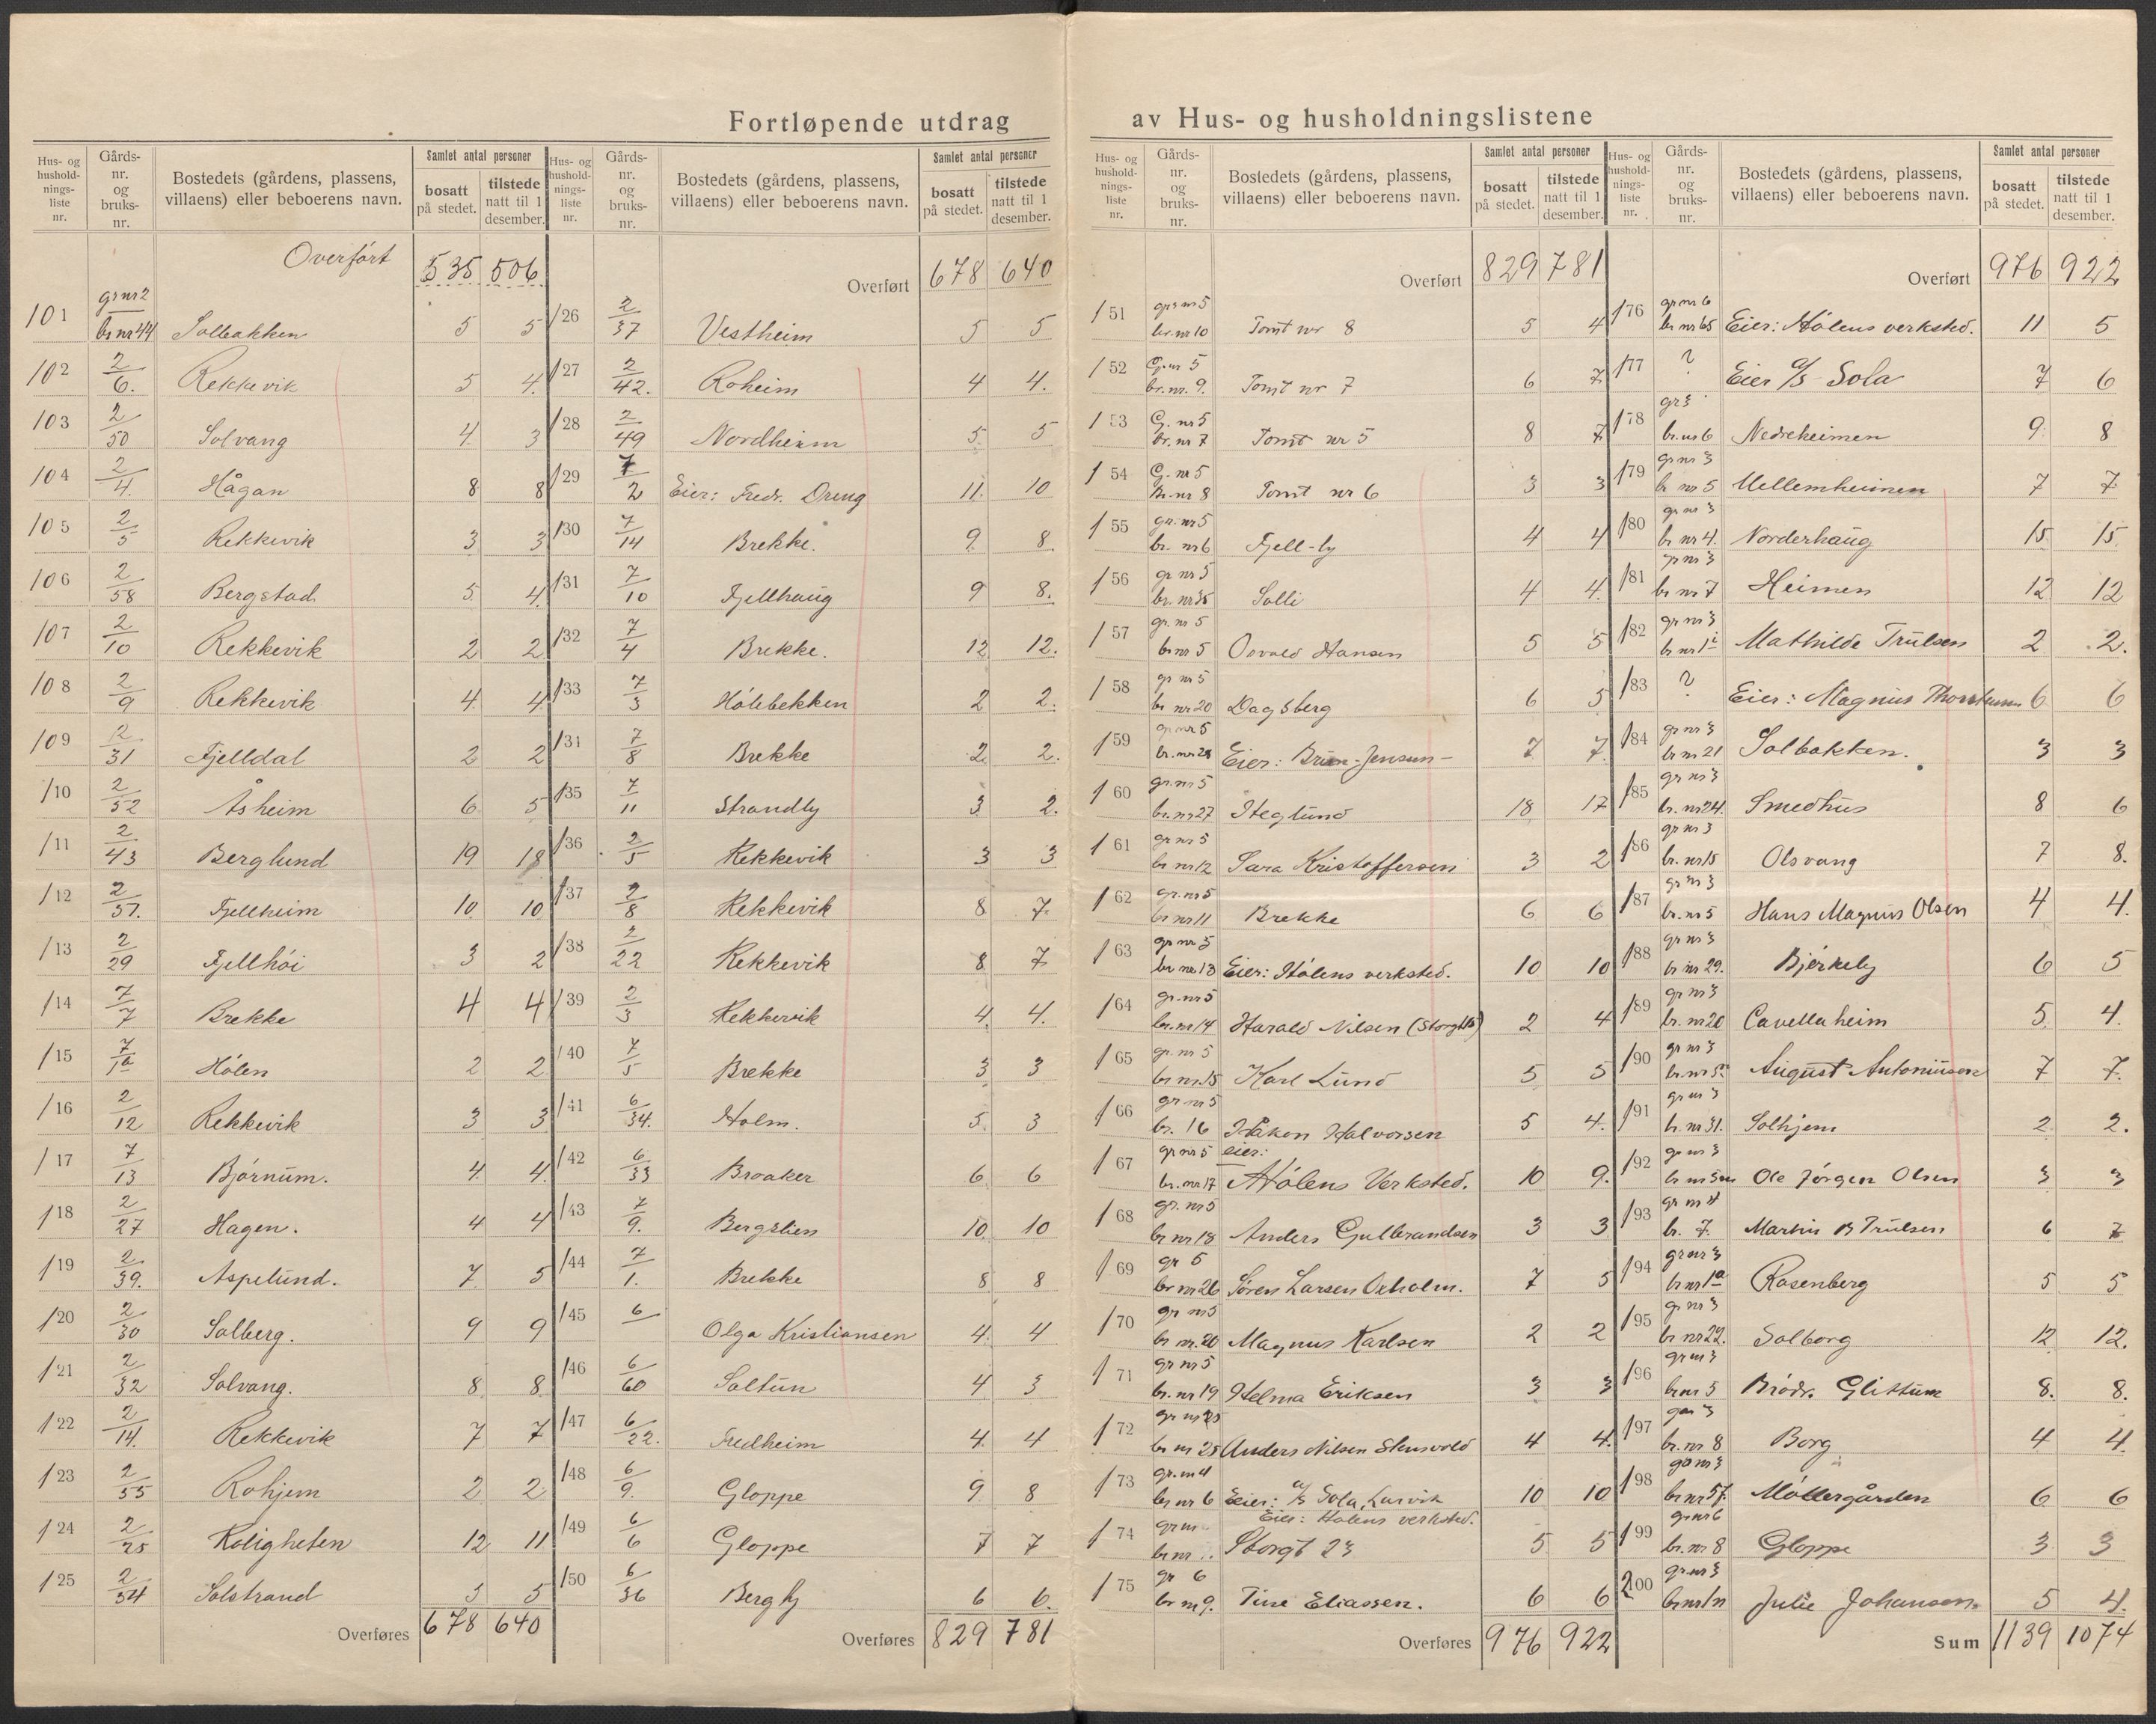 Fortløpende utdrag av Hus- og husholdningslistene
Hus- og hushold-nings-liste nr. Gårds-nr. og bruks-nr. Bostedets (gårdens, plassens, villaens) eller beboerens navn. Samlet antal personer bosatt på stedet. tilstede natt til 1 desember.
Overført 535 506
101 gr nr 2 br nr 44 Solbakken 5 5
102 2/6. Rekkevik 5 4.
103 2/50 Solvang 4. 3
104 2/4. Hågan 8 8
105 2/5 Rekkevik 3 3
106 2/58 Bergstad 5. 4.
107 2/10 Rekkevik 2 2
108 2/9 Rekkevik 4. 4
109 2/31 Fjelldal 2 2
110 2/52 Åsheim 6. 5
111 2/43 Berglund 19 18
112 2/57. Fjellheim 10. 10
113 2/29 Fjellhöi 3 2
114 7/7 Brekke 4 4
115 7/1a Hólen 2 2
116 2/12 Rekkevik 3 3
117 7/13 Bjørnum. 4. 4.
118 2/27 Hagen. 4 4
119 2/39. Aspelund. 7. 5
120 2/30 Solberg. 9 9
121 2/32 Solvang. 8 8
122 2/14. Rekkevik 7 7
123 2/55 Rohjem 2 2
124 2/25 Roligheten 12 11
125 2/54 Solstrand 5 5
Overføres 678 640
Hus- og hushold-nings-liste nr. Gårds-nr. og bruks-nr. Bostedets (gårdens, plassens, villaens) eller beboerens navn. Samlet antal personer bosatt på stedet. tilstede natt til 1 desember.
Overført 678 640
126 2/37 Vestheim 5 5
127 2/42. Roheim 4 4.
128 2/49 Nordheim 5. 5
129 7/2 Eier: Fredr. Dreng 11. 10
130 7/14 Brekke. 9. 8
131 7/10 Fjellhaug 9 8.
132 7/4 Brekke. 12 12.
133 7/3 Hólebekken 2 2.
134 7/8 Brekke 2 2.
135 7/11 Strandly 3 2.
136 2/5 Rekkevik 3 3
137 2/8 Rekkevik 8 7.
138 2/22 Rekkevik 8 7
139 2/3 Rekkevik 4. 4.
140 7/5 Brekke 3 3
141 6/34. Holm. 5. 3
142 6/33 Broaker 6 6
143 7/9. Bergslien 10 10
144 7/1. Brekke 8 8
145 6/ Olga Kristiansen 4. 4
146 6/60 Soltun 4 3
147 6/22. Fredheim 4. 4
148 6/9. Gloppe 9 8
149 6/6 Gloppe 7 7
150 6/36 Bergly 6 6.
Overføres 829 781
Hus- og hushold-nings-liste nr. Gårds-nr. og bruks-nr. Bostedets (gårdens, plassens, villaens) eller beboerens navn. Samlet antal personer bosatt på stedet. tilstede natt til 1 desember.
Overført 829 781
151 grs nr 5 br. nr 10 Tomt nr 8 5 4
152 G. nr 5 br. nr. 9. Tomt nr 7 6 7
153 G. nr 5 br. nr 7 Tomt nr 5 8 7
154 G. nr 5 Br. nr 8 Tomt nr 6 3 3
155 gr. nr 5 br. nr 6 Fjell-ly 4 4
156 gr nr 5 br. nr 35 Solli 4 4.
157 gr. nr 5 br nr 5 Osvald Hansen 5 5
158 gr nr 5 br nr 20 Dagsberg 6 5
159 gr nr 5 br. nr 28 Eier: Brun-Jensen- 7 7.
160 gr. nr 5 br. nr 27 Steglund 18 17
161 gr nr 5 br nr 12 Sara Kristoffersen 3 2
162 gr. nr 5 br nr 11 Brekke 6 6
163 gr nr 5 br nr 13 Eier: Hólens verksted. 10 10
164 gr. nr 5 br. nr 14 Harald Nilsen 2 4
165 gr. nr 5 br nr. 15 Karl Lund 5 5
166 gr nr 5 br. 16 Håkon Halvorsen 5 4.
167 gr nr 5 br. nr 17 eier: Hólens Verksted. 10 9.
168 gr. nr 5 br nr 18 Anders Gulbrandsen 3 3
169 gr 5 br nr 26 Sören Larsen Oxholm. 7 5
170 gr nr 5 br nr. 20 Magnus Karlsen 2 2
171 gr nr 5 br. nr 19 Helma Eriksen 3 3
172 gr nr 5 br nr 25 Anders Nilsen Stensvold 4 4.
173 gr. nr 4 br nr 6 Eier: a/s Sola, Larvik 10 10
174 gr nr br nr .. Eier: Holens verksted. Storgt 23 5 5
175 gr 6 br nr 9. Tine Eliassen. 6 6
Overføres 976 922
Hus- og hushold-nings-liste nr. Gårds-nr. og bruks-nr. Bostedets (gårdens, plassens, villaens) eller beboerens navn. Samlet antal personer bosatt på stedet. tilstede natt til 1 desember.
Overført 976 922
176 gr nr 6 br nr 65 Eier: Hólens verksted. 11 5
177 ? Eier a/s Sola 7 6
178 gr 3 br. nr 6 Nedreheimen 9. 8
179 gr nr 3 br nr 5 Mellemheimen 7 7
180 gr nr 3 br nr 4. Norderhaug 15 15.
181 gr nr 3 br nr 7 Heimen 12 12
182 gr nr 3 br nr 1 Mathilde Trulsen 2 2.
183 ? Eier: Magnus 6 6
184 gr nr 3 br nr 21 Solbakken. 3 3
185 gr nr 3 br. nr 24. Smedhus 8 6
186 gr nr 3 br. nr 15 Olsvang 7 8.
187 gr nr 3 br. nr 5 Hans Magnus Olsen 4 4.
188 gr nr 3 br nr 29. Bjerkely 6 5
189 gr nr 3 br. nr 20 Cavellaheim 5. 4.
190 gr nr 3 br. nr 5 August Antoniussen 7 7.
191 gr nr 3 br. nr 31. Solhjem 2 2.
192 gr nr 3 br nr Ole Jörgen Olsen 3 3
193 gr nr 4 br. 7. Martin B Trulsen 6 7
194 gr nr 3 br nr 1a Rosenberg 5 5
195 gr nr 3 br nr 22. Solborg 12 12.
196 gr nr 3 br nr 5 Brödr. Glittum 8. 8.
197 gr 3 br. nr 8 Borg 4 4
198 ga nr 3 br nr 57. Möllergården 6 6
199 gr nr 6 br. nr 8 Gloppe 3 3
200 gr nr 3 br nr 1n Julie Johansen. 5 4.
Sum 1139 1074